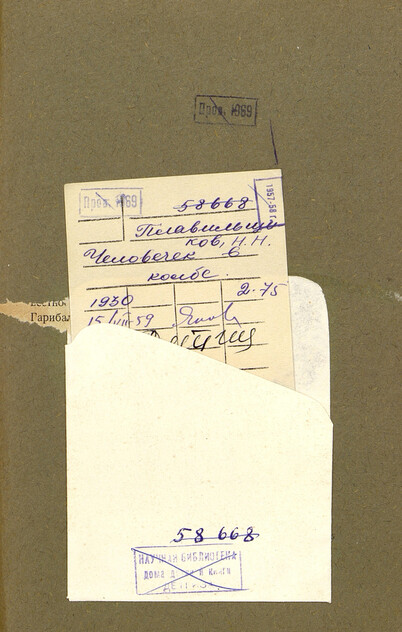 Пров. 1989
Пров. 1989
1957-58 г.
58668
Плавильщи
ков, Н.Н.
Человечек в
колбе.
1930
2-75
15/VII-59
Гарибал
58668
НАУЧНАЯ БИБЛИОТЕКА
ДОМА ДЕТСКОЙ КНИГИ
ДЕТГИЗА